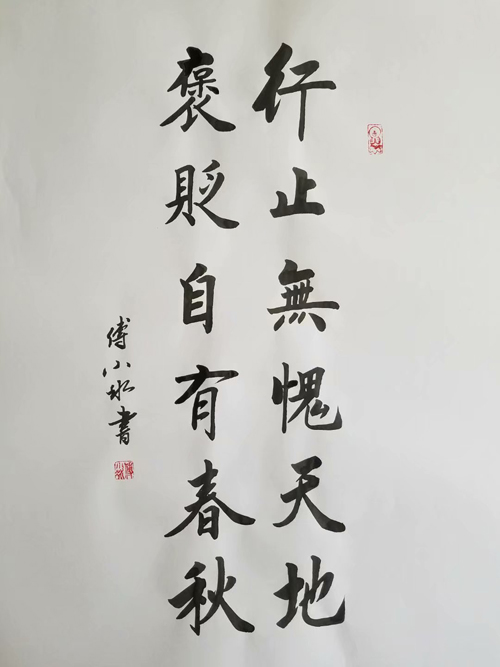 行止無愧天地
褒貶自有春秋
傅小冰書